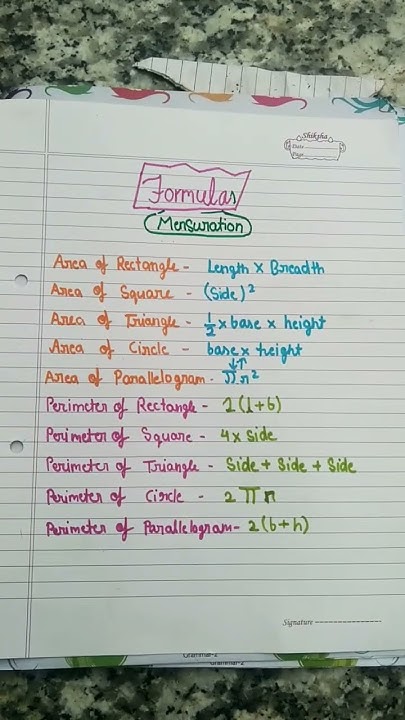 Shiksha
Date
Page
Formulas
Mensuration
Area of Rectangle - Length × Breadth
Area of Square - (Side)²
Area of Triangle - 1/2 × base × height
Area of Circle - base × height
↓↑
Area of Parallelogram - πr²
Perimeter of Rectangle - 2(l+b)
Perimeter of Square - 4× Side
Perimeter of Triangle - Side + Side + Side
Perimeter of Circle - 2πr
Perimeter of Parallelogram - 2(b+h)
Signature
Grammar-2